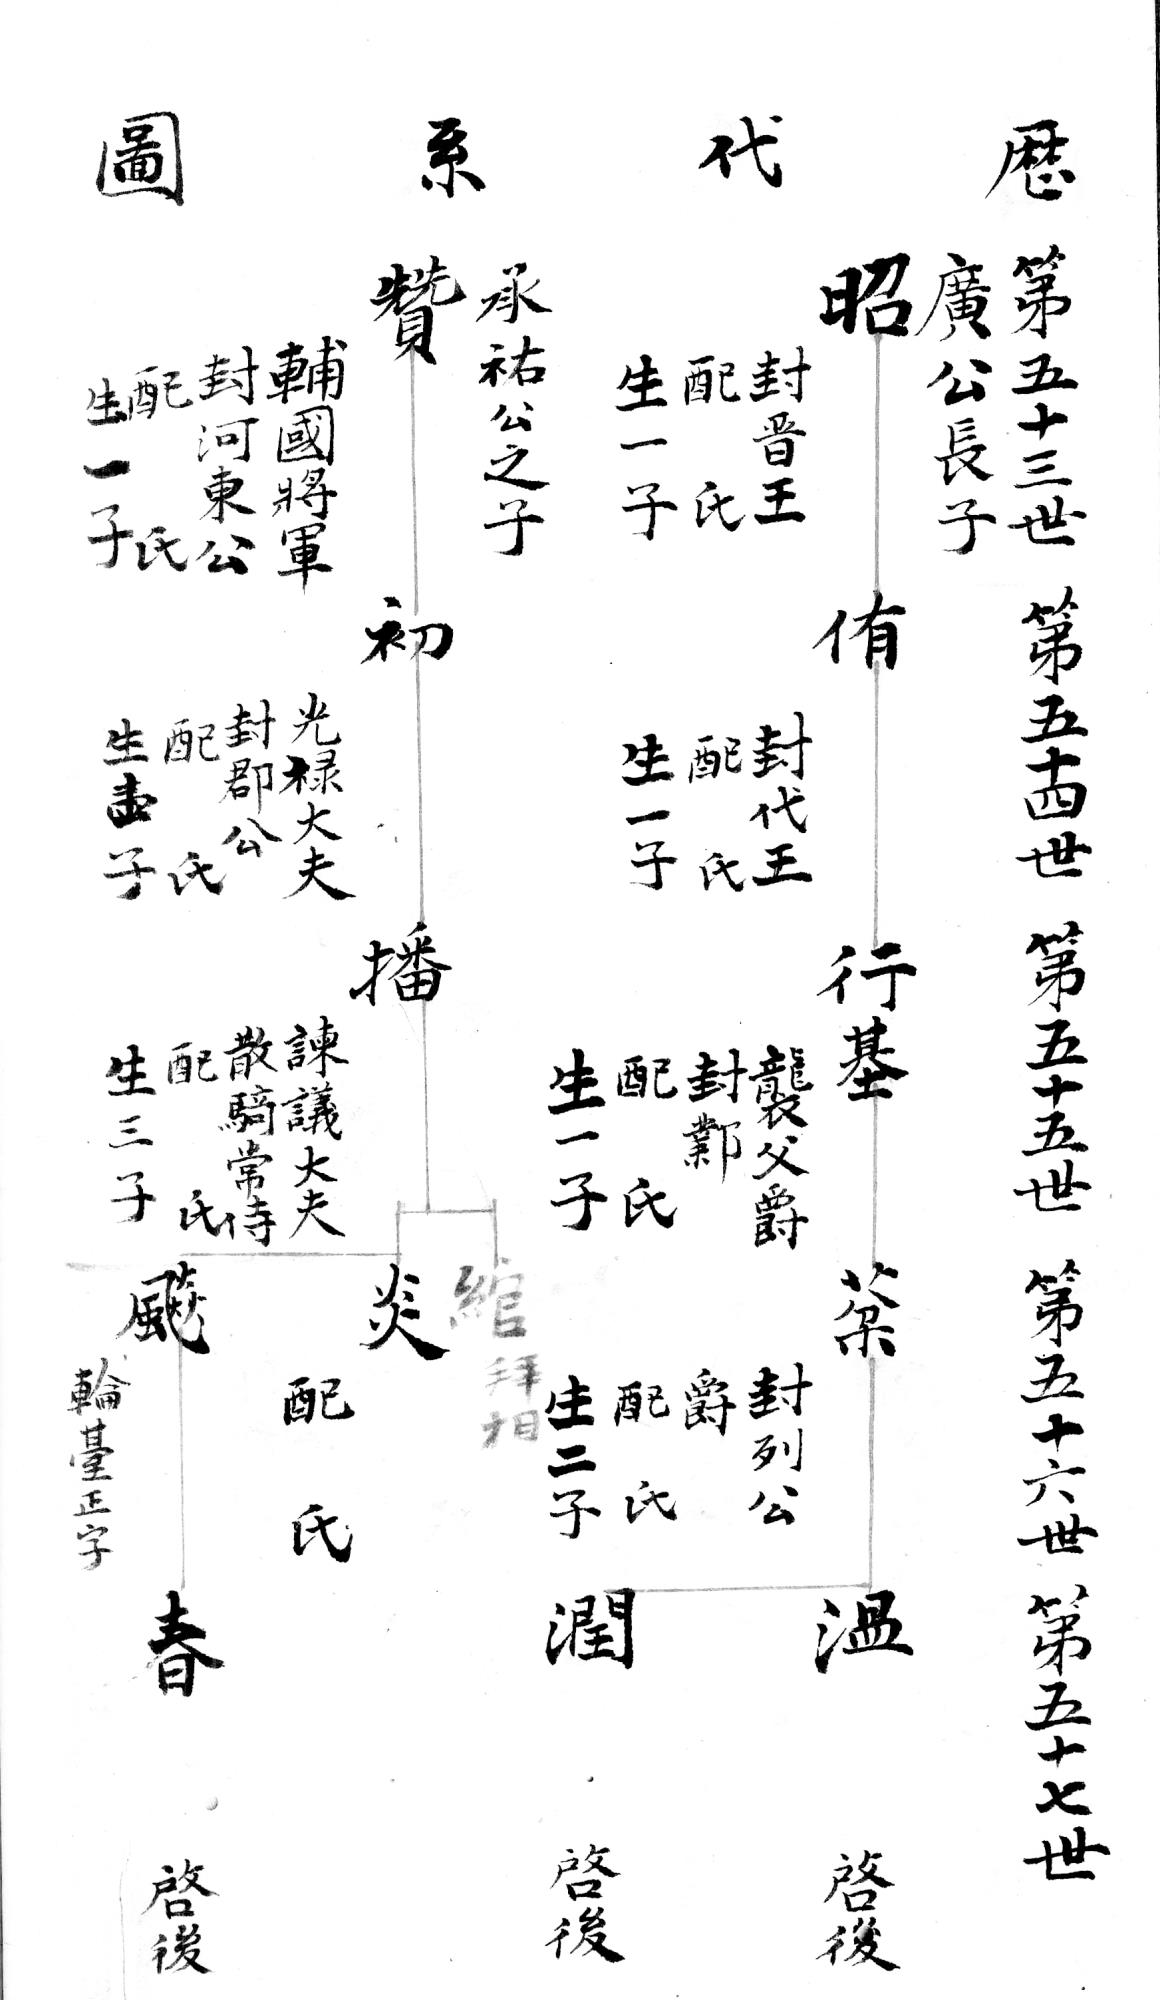 歷代系圖
第五十三世
第五十四世
第五十五世
第五十六世
第五十七世
廣公長子
昭
封晋王
配氏
生一子
侑
封代王
配氏
生一子
行基
襲父爵
封鄴
配氏
生一子
棻
封列公
爵
配氏
生二子
溫
啓後
潤
啓後
承祐公之子
贊
輔國將軍
封河東公
配氏
生一子
初
光禄大夫
封郡公
配氏
生子
播
諫議大夫
散騎常侍
配氏
生三子
綰
拜相
炎
配氏
飈
輪臺正字
春
啓後